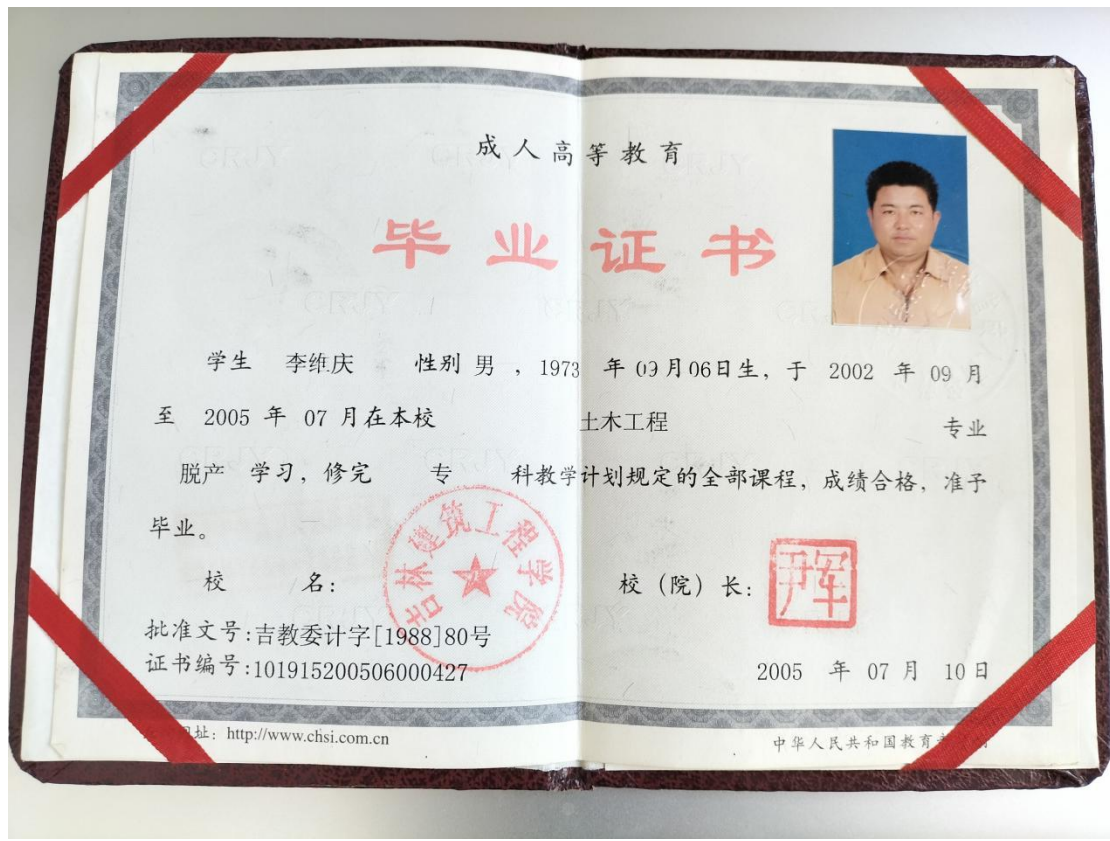 成人高等教育
毕业证书
学生 李维庆 性别 男 ，1973 年 09月06日生，于 2002 年 09 月
至 2005 年 07 月在本校 土木工程 专业
脱产 学习，修完 专 科教学计划规定的全部课程，成绩合格，准予
毕业。
校 名： 校（院）长：
吉林建筑工程学院
批准文号:吉教委计字[1988]80号
证书编号:101915200506000427
2005 年 07 月 10 日
网址：http://www.chsi.com.cn
中华人民共和国教育